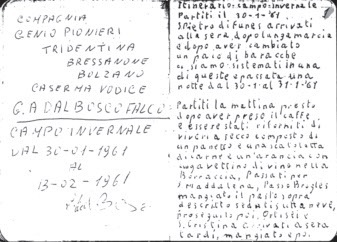 COMPAGNIA
GENIO PIONIERI
TRIDENTINA
BRESSANONE
BOLZANO
CASERMA VODICE
G.A DAL BOSCO FALCO
CAMPO INVERNALE
DAL 30-01-1961
AL
13-02-1961
Itinerario: campo: invernale
Partiti il 30-1-61.
S. Pietro di Funes arrivati
alla sera, dopo lunga marcia
e dopo aver cambiato
un paio di baracche
ci siamo sistemati in una
di queste e passata una
notte dal 30-1 al 31-1-61
Partiti la mattina presto
dopo aver preso il caffè
e essere stati riforniti di
viveri a secco composto di
un panetto e una scatoletta
di carne e un'arancia con
un pavettino di vino nella
Borraccia, Passati per
S. Maddalena, Passo Brogles
mangiato il pasto sopra
descritto seduti sulla neve,
proseguito poi, Ortisei e
S. Cristina arrivati a sera
tardi, mangiato e poi